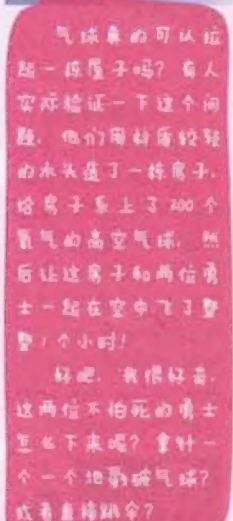 气球真的可以拉
起一栋屋子吗？有人
实际验证一下这个问
题。他们用材质较轻
的木头造了一栋房子，
给房子系上了 300 个
氦气的高空气球，然
后让这房子和两位勇
士一起在空中飞了整
整 1 个小时！
好吧，我很好奇，
这两位不怕死的勇士
怎么下来呢？拿针一
个一个地戳破气球？
或者直接跳伞？